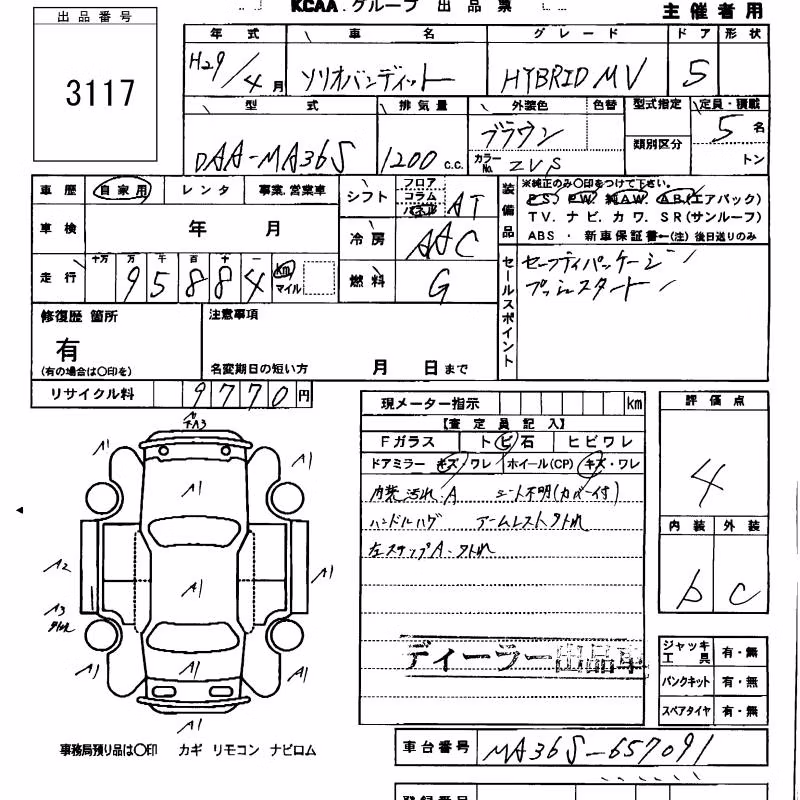 KCAA.グループ 出品票
主催者用
出品番号
3117
年式 車名 グレード ドア 形状
H29/4月 ソリオバンディット HYBRID MV 5
型式 排気量 外装色 色替 型式指定 定員・積載
類別区分
DAA-MA36S 1200 c.c. ブラウン 5名
カラーNo. ZVS トン
車歴 自家用 レンタ 事業.営業車
車検 年 月
走行 十万 万 千 百 十 一
95884 km マイル
シフト フロア コラム パネル AT
冷房 AAC
燃料 G
装備品
※純正のみ〇印をつけて下さい。
P.S. P.W. 純A.W. A.B.(エアバック)
T.V. ナビ. カワ. S R(サンルーフ)
ABS ・ 新車保証書←(注) 後日送りのみ
セールスポイント
セーフティパッケージ
プッシュスタート
修復歴 箇所
有
(有の場合は〇印を)
注意事項
名変期日の短い方 月 日まで
リサイクル料 9770円
現メーター指示 km
【査定員記入】
Fガラス トビ石 ヒビワレ
ドアミラー キズ/ワレ ホイール(CP) キズ・ワレ
内装汚れ.A シート不明(カバー付)
ハンドルハゲ アームレスト外れ
左ステップA.外れ
ディーラー出品車
評価点
4
内装 外装
b C
A1
A1
A1
A1
A2
A1
A1
A3
外れ
A1
A1
A1
A1
ジャッキ 工具 有・無
パンクキット 有・無
スペアタイヤ 有・無
事務局預り品は〇印 カギ リモコン ナビロム
車台番号 MA36S-657091
登録番号